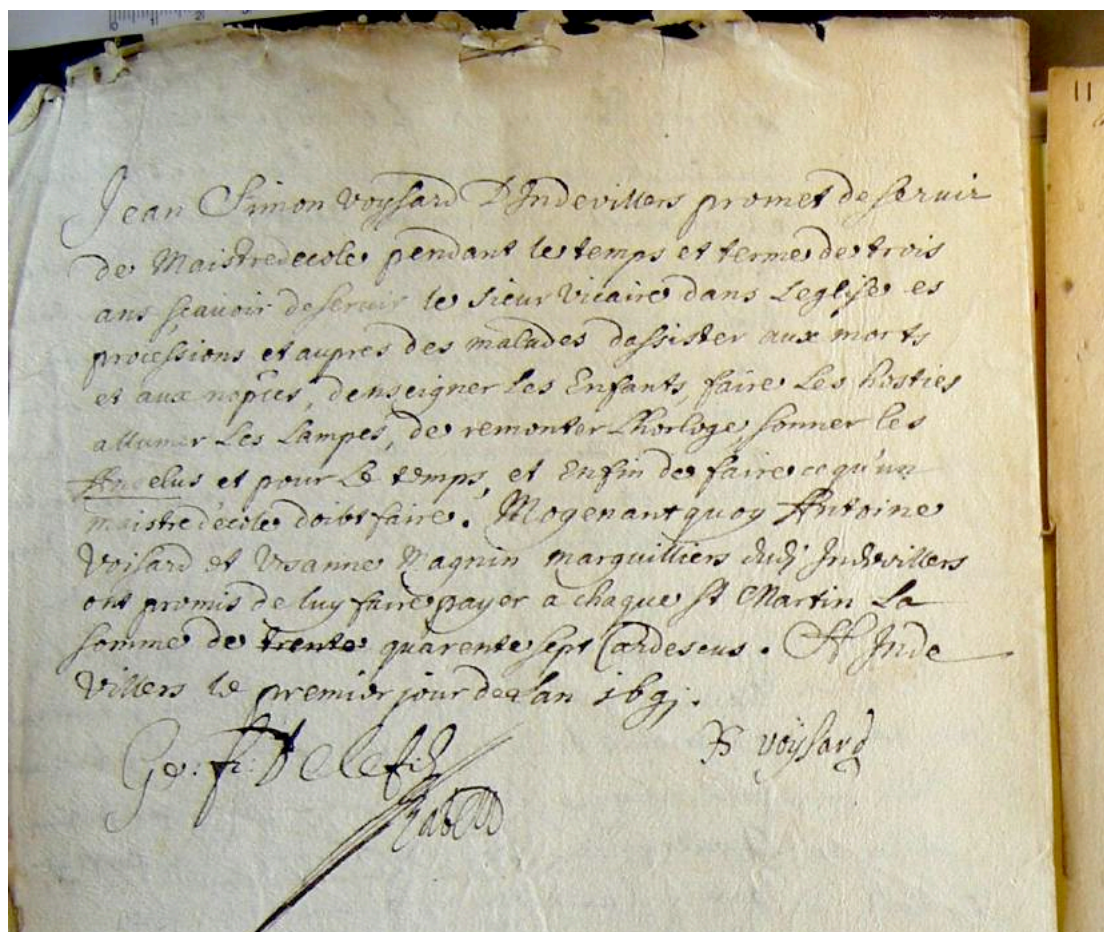 Jean Simon Voysard D'Indevillers promet de servir
de Maistre decole pendant le temps et terme de trois
ans scavoir de servir le sieur vicaire dans Leglise es
processions et aupres des malades dassister aux morts
et aux nopces, denseigner les Enfants, faire Les hosties
allumer Les Lampes, de remonter Lhorloge, sonner les
Angelus et pour Le temps, et Enfin de faire ce qu'un
maistre decole doibt faire. Mogenant quoy Antoine
Voisard et Vrsanne marguilliers dud Indevillers
ont promis de luy faire payer a chaque st Martin La
somme de trente quarente sept Cardescus. A Inde
Villers le premier jour de lan 169j.
voysard